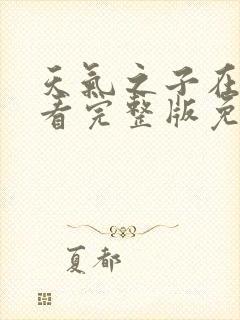 天氣之子在
看完整版免
夏都